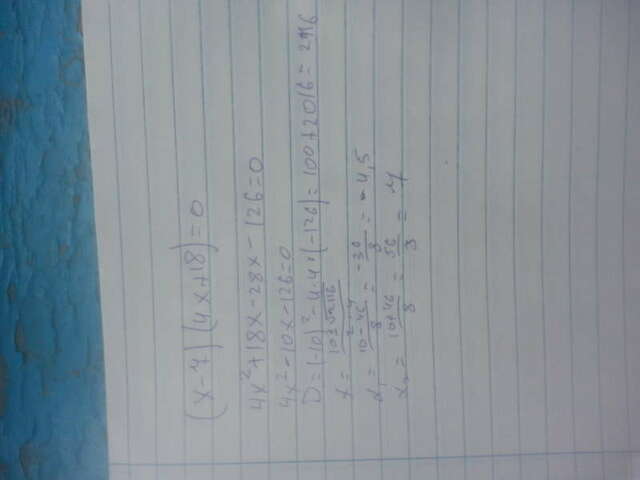 (x-7)(4x+18)=0
4x²+18x-28x-126=0
4x²-10x-126=0
D=(-10)²-4·4·(-126)=100+2016=2116
x=\frac{10±√2116}{2·4}
x₁=\frac{10-46}{8}=\frac{-36}{8}=-4,5
x₂=\frac{10+46}{8}=\frac{56}{8}=7